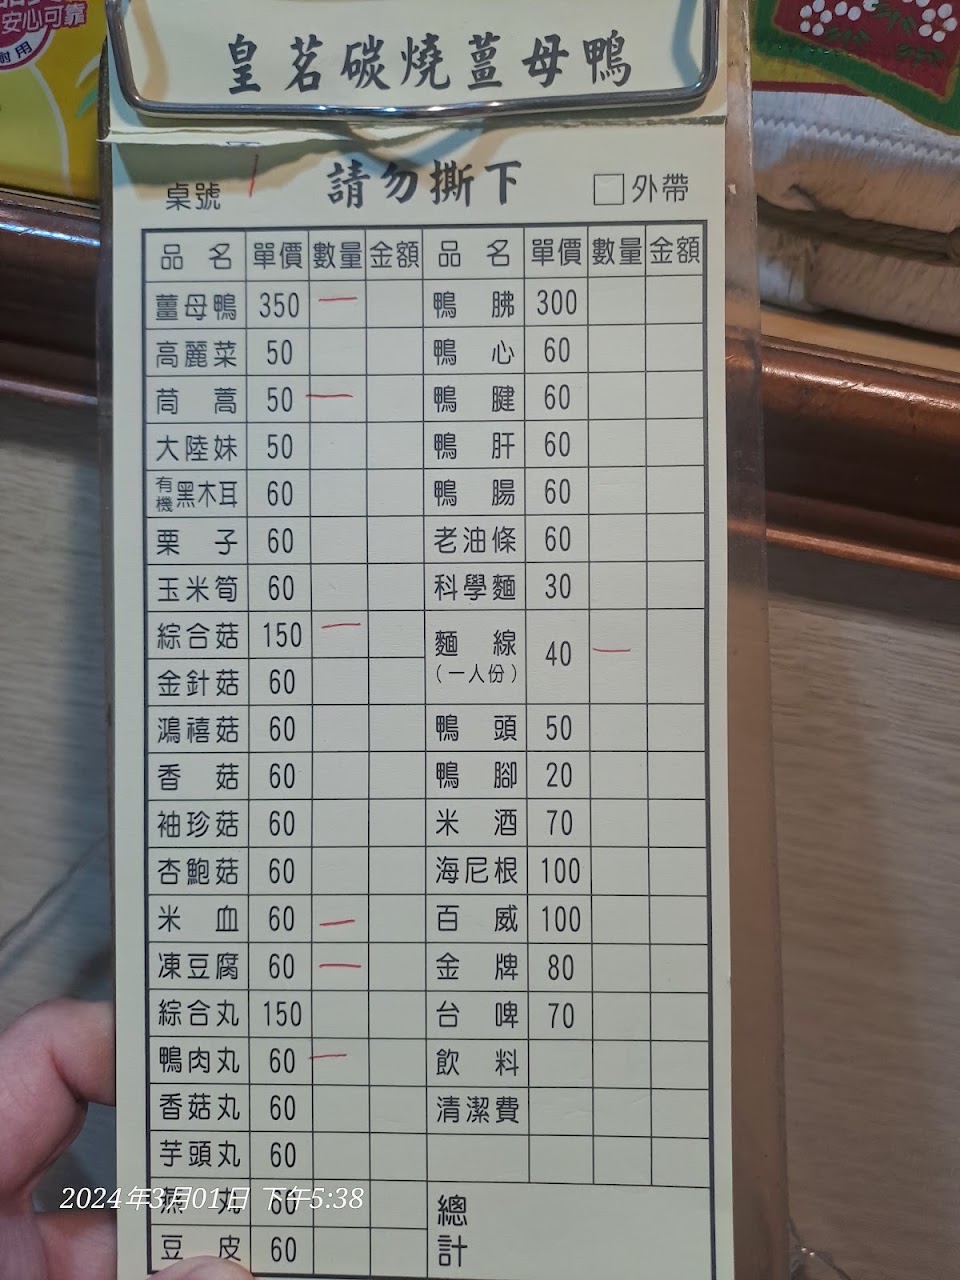 安心可靠
皇茗碳燒薑母鴨
桌號 1 請勿撕下 □外帶
品名 單價 數量 金額 品名 單價 數量 金額
薑母鴨 350 一 鴨胇 300
高麗菜 50 鴨心 60
茼蒿 50 一 鴨腱 60
大陸妹 50 鴨肝 60
有機黑木耳 60 鴨腸 60
栗子 60 老油條 60
玉米筍 60 科學麵 30
綜合菇 150 一 麵線(一人份) 40 一
金針菇 60
鴻禧菇 60 鴨頭 50
香菇 60 鴨腳 20
袖珍菇 60 米酒 70
杏鮑菇 60 海尼根 100
米血 60 一 百威 100
凍豆腐 60 一 金牌 80
綜合丸 150 台啤 70
鴨肉丸 60 一 飲料
香菇丸 60 清潔費
芋頭丸 60
丸 60 總計
豆皮 60
2024年3月01日 下午5:38